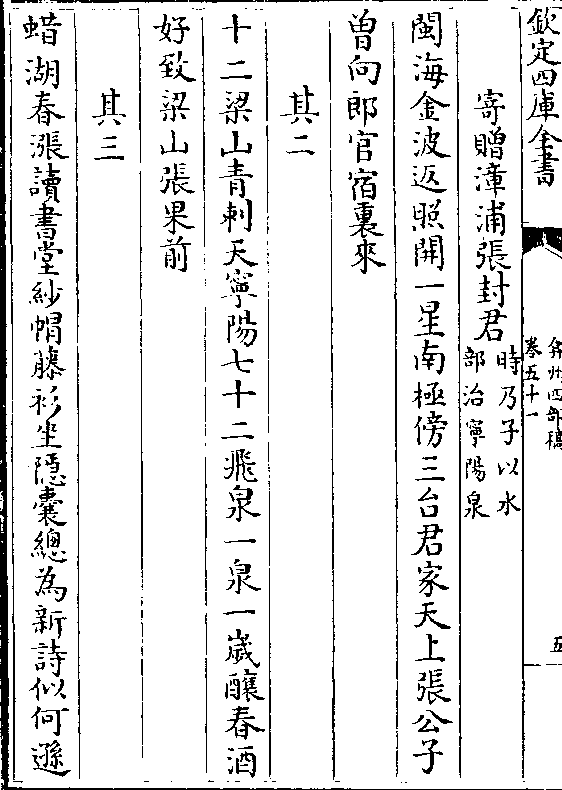 欽定四庫全書
弇州四部稿
卷五十一
五
寄贈漳浦張封君
時乃子以水
部治寧陽泉
閩海金波返照開一星南極傍三台君家天上張公子
曾向郎官宿裏來
其二
十二梁山青刺天寧陽七十二飛泉一泉一歲釀春酒
好致梁山張果前
其三
蜡湖春漲讀書堂紗帽藤衫坐隱囊總為新詩似何遜